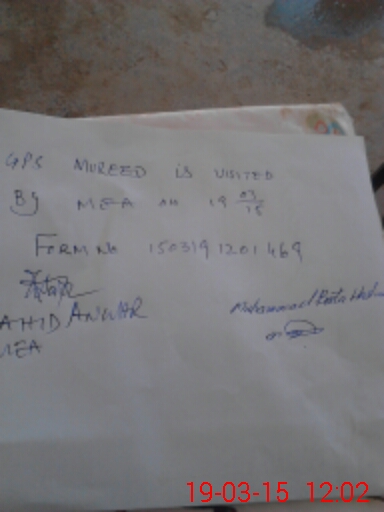 GPS MUREED is VISITED
By MEA on 19 03/15
Form No 150319 1201469
AHID ANWAR
MEA
Muhammad
19-03-15 12:02